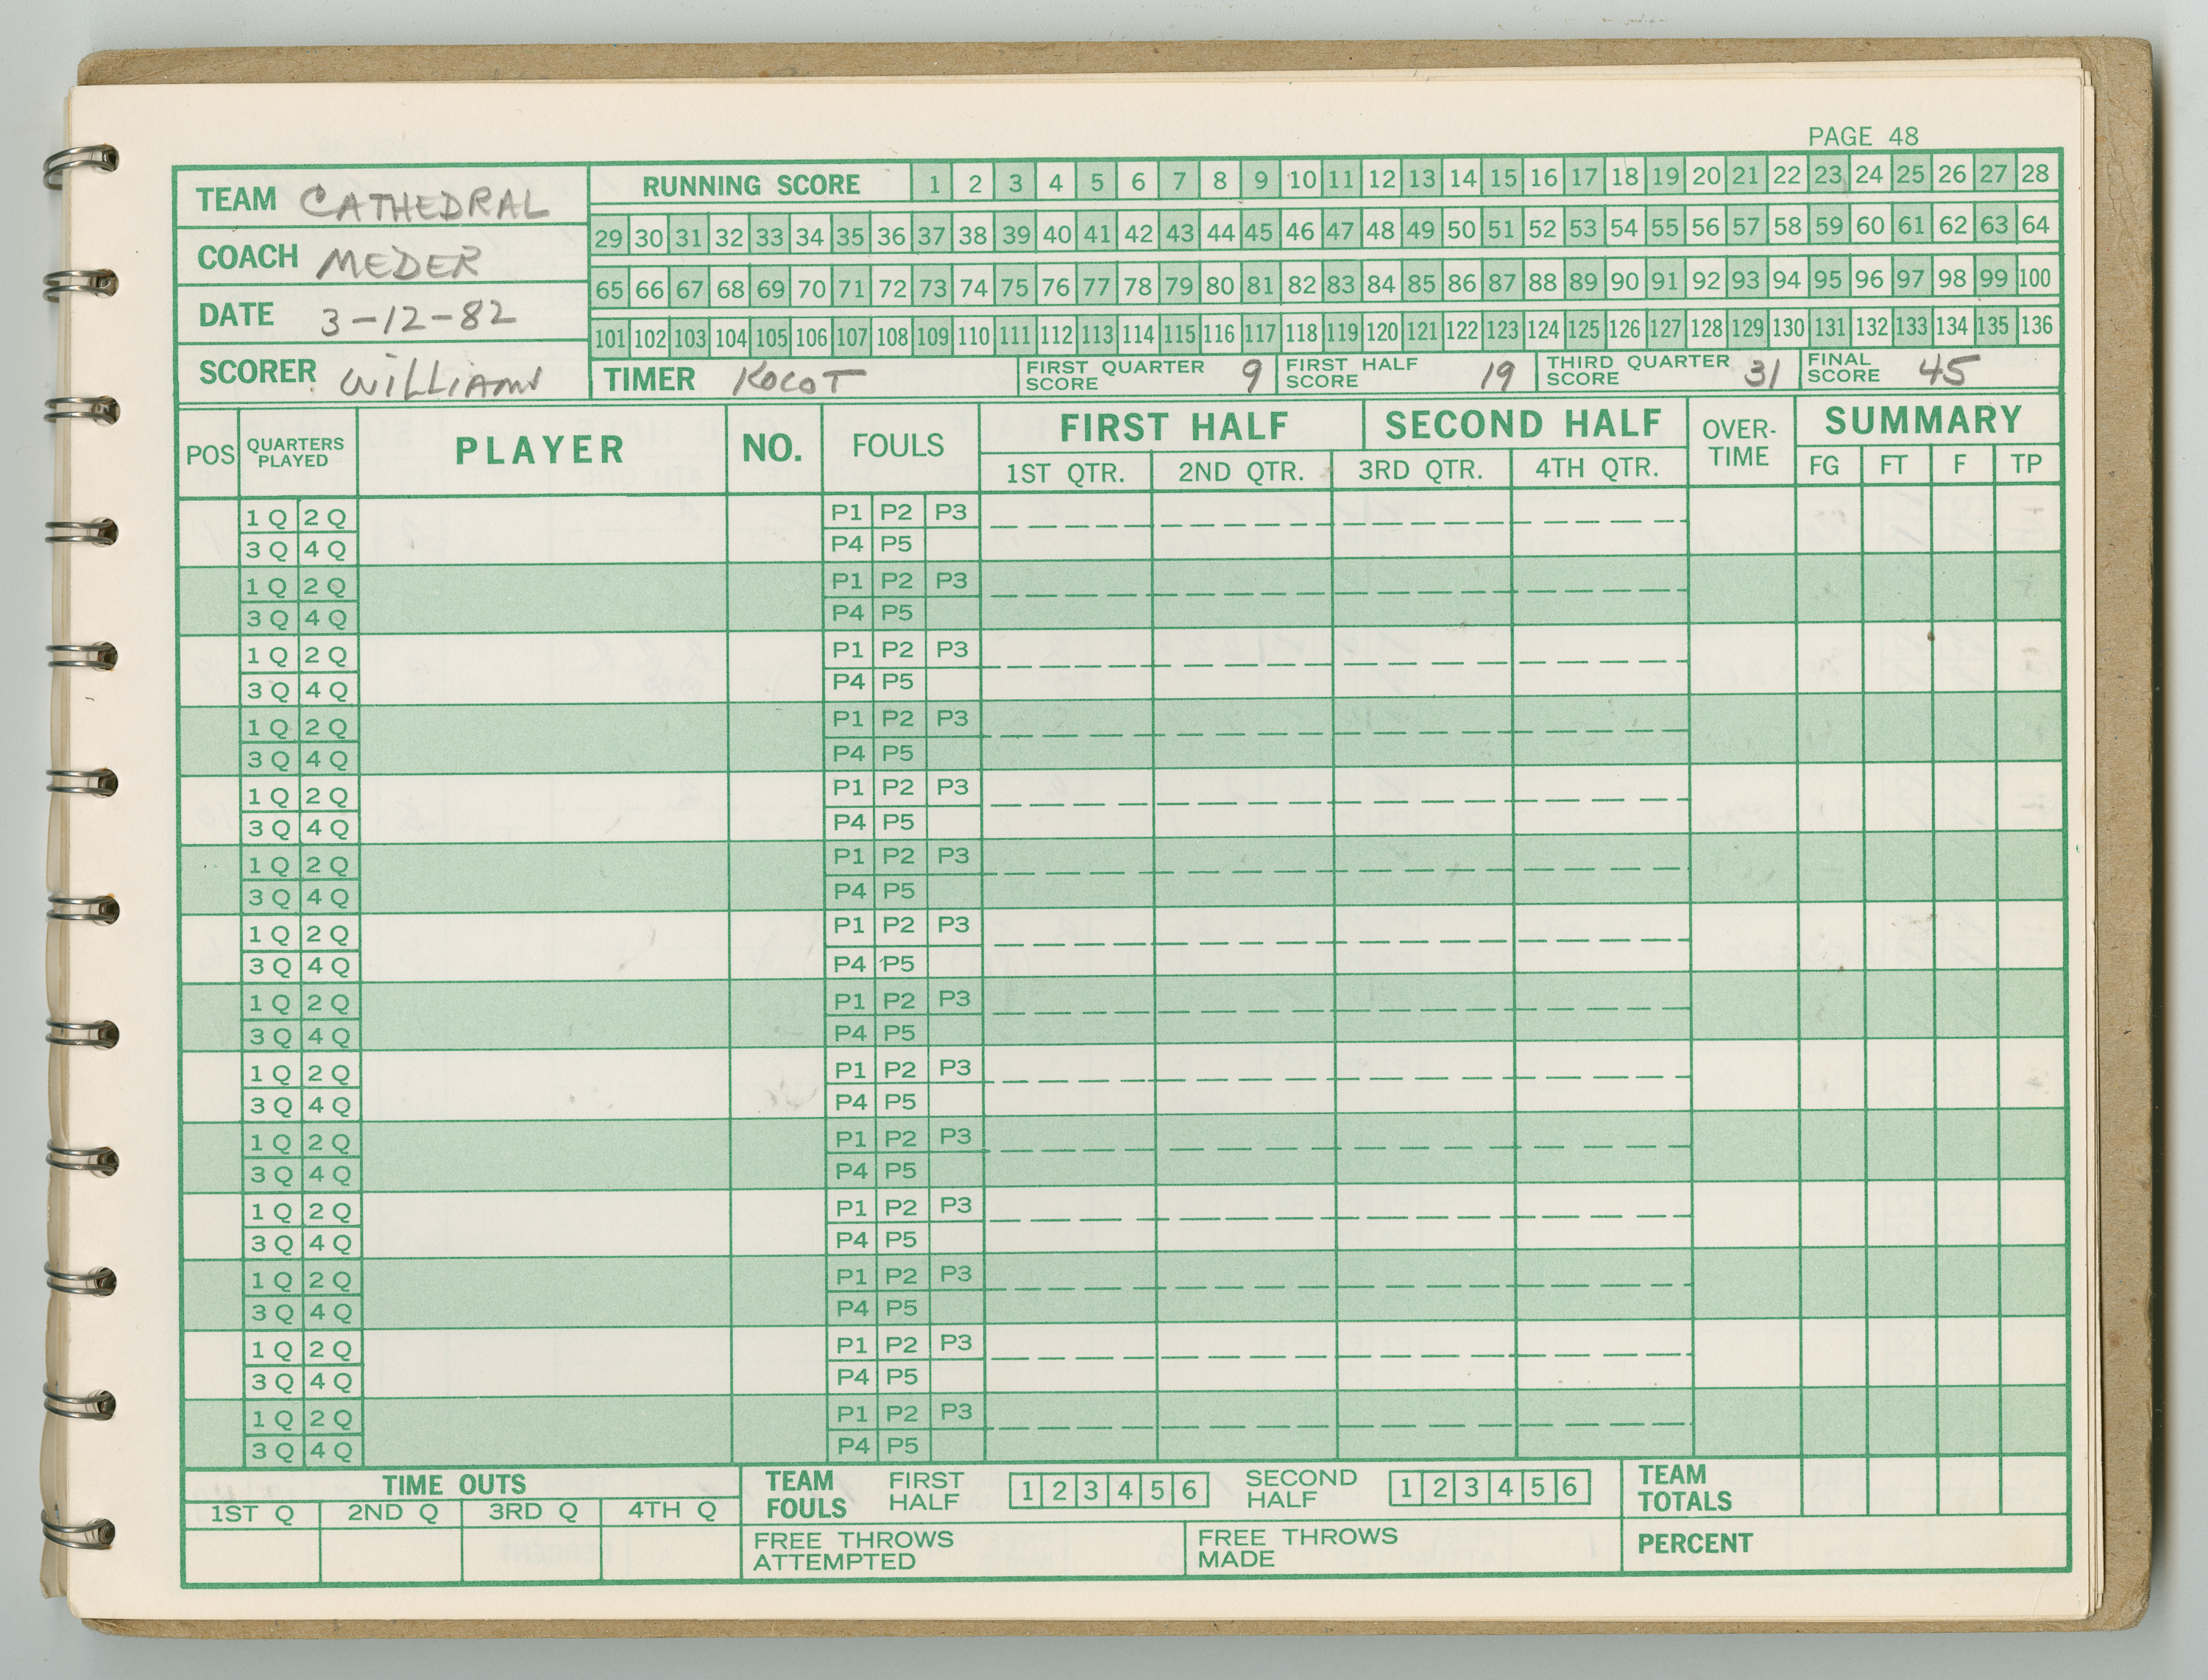 PAGE 48
TEAM CATHEDRAL
COACH MEDER
DATE 3-12-82
SCORER WILLIAMS
RUNNING SCORE 1 2 3 4 5 6 7 8 9 10 11 12 13 14 15 16 17 18 19 20 21 22 23 24 25 26 27 28
29 30 31 32 33 34 35 36 37 38 39 40 41 42 43 44 45 46 47 48 49 50 51 52 53 54 55 56 57 58 59 60 61 62 63 64
65 66 67 68 69 70 71 72 73 74 75 76 77 78 79 80 81 82 83 84 85 86 87 88 89 90 91 92 93 94 95 96 97 98 99 100
101 102 103 104 105 106 107 108 109 110 111 112 113 114 115 116 117 118 119 120 121 122 123 124 125 126 127 128 129 130 131 132 133 134 135 136
TIMER KOCOT FIRST QUARTER SCORE 9 FIRST HALF SCORE 19 THIRD QUARTER SCORE 31 FINAL SCORE 45
POS QUARTERS PLAYED PLAYER NO. FOULS FIRST HALF SECOND HALF OVER-TIME SUMMARY
1ST QTR. 2ND QTR. 3RD QTR. 4TH QTR. FG FT F TP
1 Q 2 Q P1 P2 P3
3 Q 4 Q P4 P5
1 Q 2 Q P1 P2 P3
3 Q 4 Q P4 P5
1 Q 2 Q P1 P2 P3
3 Q 4 Q P4 P5
1 Q 2 Q P1 P2 P3
3 Q 4 Q P4 P5
1 Q 2 Q P1 P2 P3
3 Q 4 Q P4 P5
1 Q 2 Q P1 P2 P3
3 Q 4 Q P4 P5
1 Q 2 Q P1 P2 P3
3 Q 4 Q P4 P5
1 Q 2 Q P1 P2 P3
3 Q 4 Q P4 P5
1 Q 2 Q P1 P2 P3
3 Q 4 Q P4 P5
1 Q 2 Q P1 P2 P3
3 Q 4 Q P4 P5
1 Q 2 Q P1 P2 P3
3 Q 4 Q P4 P5
1 Q 2 Q P1 P2 P3
3 Q 4 Q P4 P5
1 Q 2 Q P1 P2 P3
3 Q 4 Q P4 P5
1 Q 2 Q P1 P2 P3
3 Q 4 Q P4 P5
TIME OUTS
1ST Q 2ND Q 3RD Q 4TH Q
TEAM FOULS FIRST HALF 1 2 3 4 5 6 SECOND HALF 1 2 3 4 5 6
TEAM TOTALS
FREE THROWS ATTEMPTED FREE THROWS MADE PERCENT